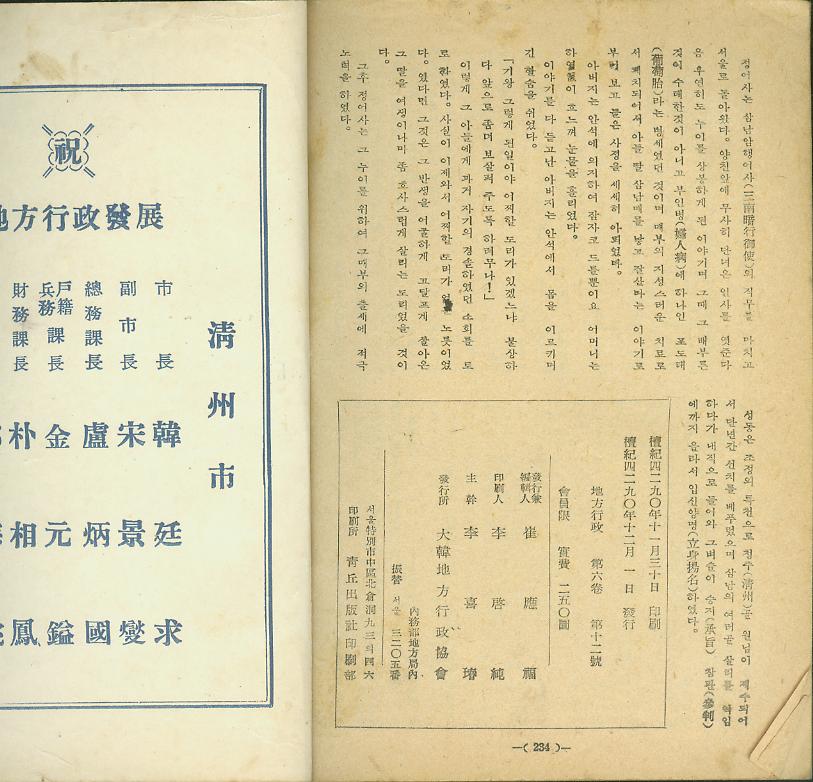 정어사는 삼남암행어사(三南暗行御使)의 직무를 마치고
서울로 돌아왔다. 양친앞에 무사히 단녀온 인사를 엿준다
음 우연히도 누이를 상봉하게 된 이야기며 그때 그 배부른
것이 수태한것이 아니고 부인병(婦人病)에 하나인 포도태
(葡萄胎)라는 병세였던 것이며 매부의 지성스러운 치료로
서 쾌치되어서 아들 딸 삼남매를 낳고 잘산다는 이야기로
부터 보고 들은 사정을 세세히 아뢰었다.
아버지는 안석에 의지하여 잠자코 드를뿐이요 어머니는
하염없이 흐느껴 눈물을 흘리었다.
이야기를 다 듣고난 아버지는 안석에서 몸을 이르키며
긴 한숨을 쉬였다.
「기왕 그렇게 된일이야 어찌할 도리가 있겠느냐 불상하
다 앞으로 좀더 보살펴 주도록 하려무나!」
이렇게 그 아들에게 과거 자기의 경솔하였던 소회를 토
로 하였다. 사실이 이제와서 어찌할 도리가 노릇이었
다. 있다면 그것은 그 반생을 억울하게 고달프게 살아온
그 딸을 여생이나마 좀 호사스럽게 살리는 도리였을 것이
다.
그후 정어사는 그 누이를 위하여 그매부의 출세에 적극
노력을 하였다.
성동은 조정의 특천으로 청주(淸州)골 원님이 제수되어
서 단년간 선치를 베푸렀으며 삼남의 여러골 살리를 력임
하다가 내직으로 들어와 그벼슬이 승지(承旨) 참판(參判)
에까지 올라서 입신양명(立身揚名)하였다.
檀紀四二九〇年十一月三十日 印刷
檀紀四二九〇年十二月 一日 發行
地方行政 第六卷 第十二號
會員限 實費 二五〇圜
發行兼編輯人 崔應福
印刷人 李啓純
主幹 李喜璿
發行所 大韓地方行政協會
內務部地方局內
振替 서울 三二〇五番
서울特別市中區北倉洞九三의四六
印刷所 靑丘出版社印刷部
—( 234 )—
祝
地方行政發展
淸州市
市長 韓廷求
副市長 宋景燮
總務課長 盧炳國
戶籍兵務課長 金元鎰
財務課長 朴相鳳